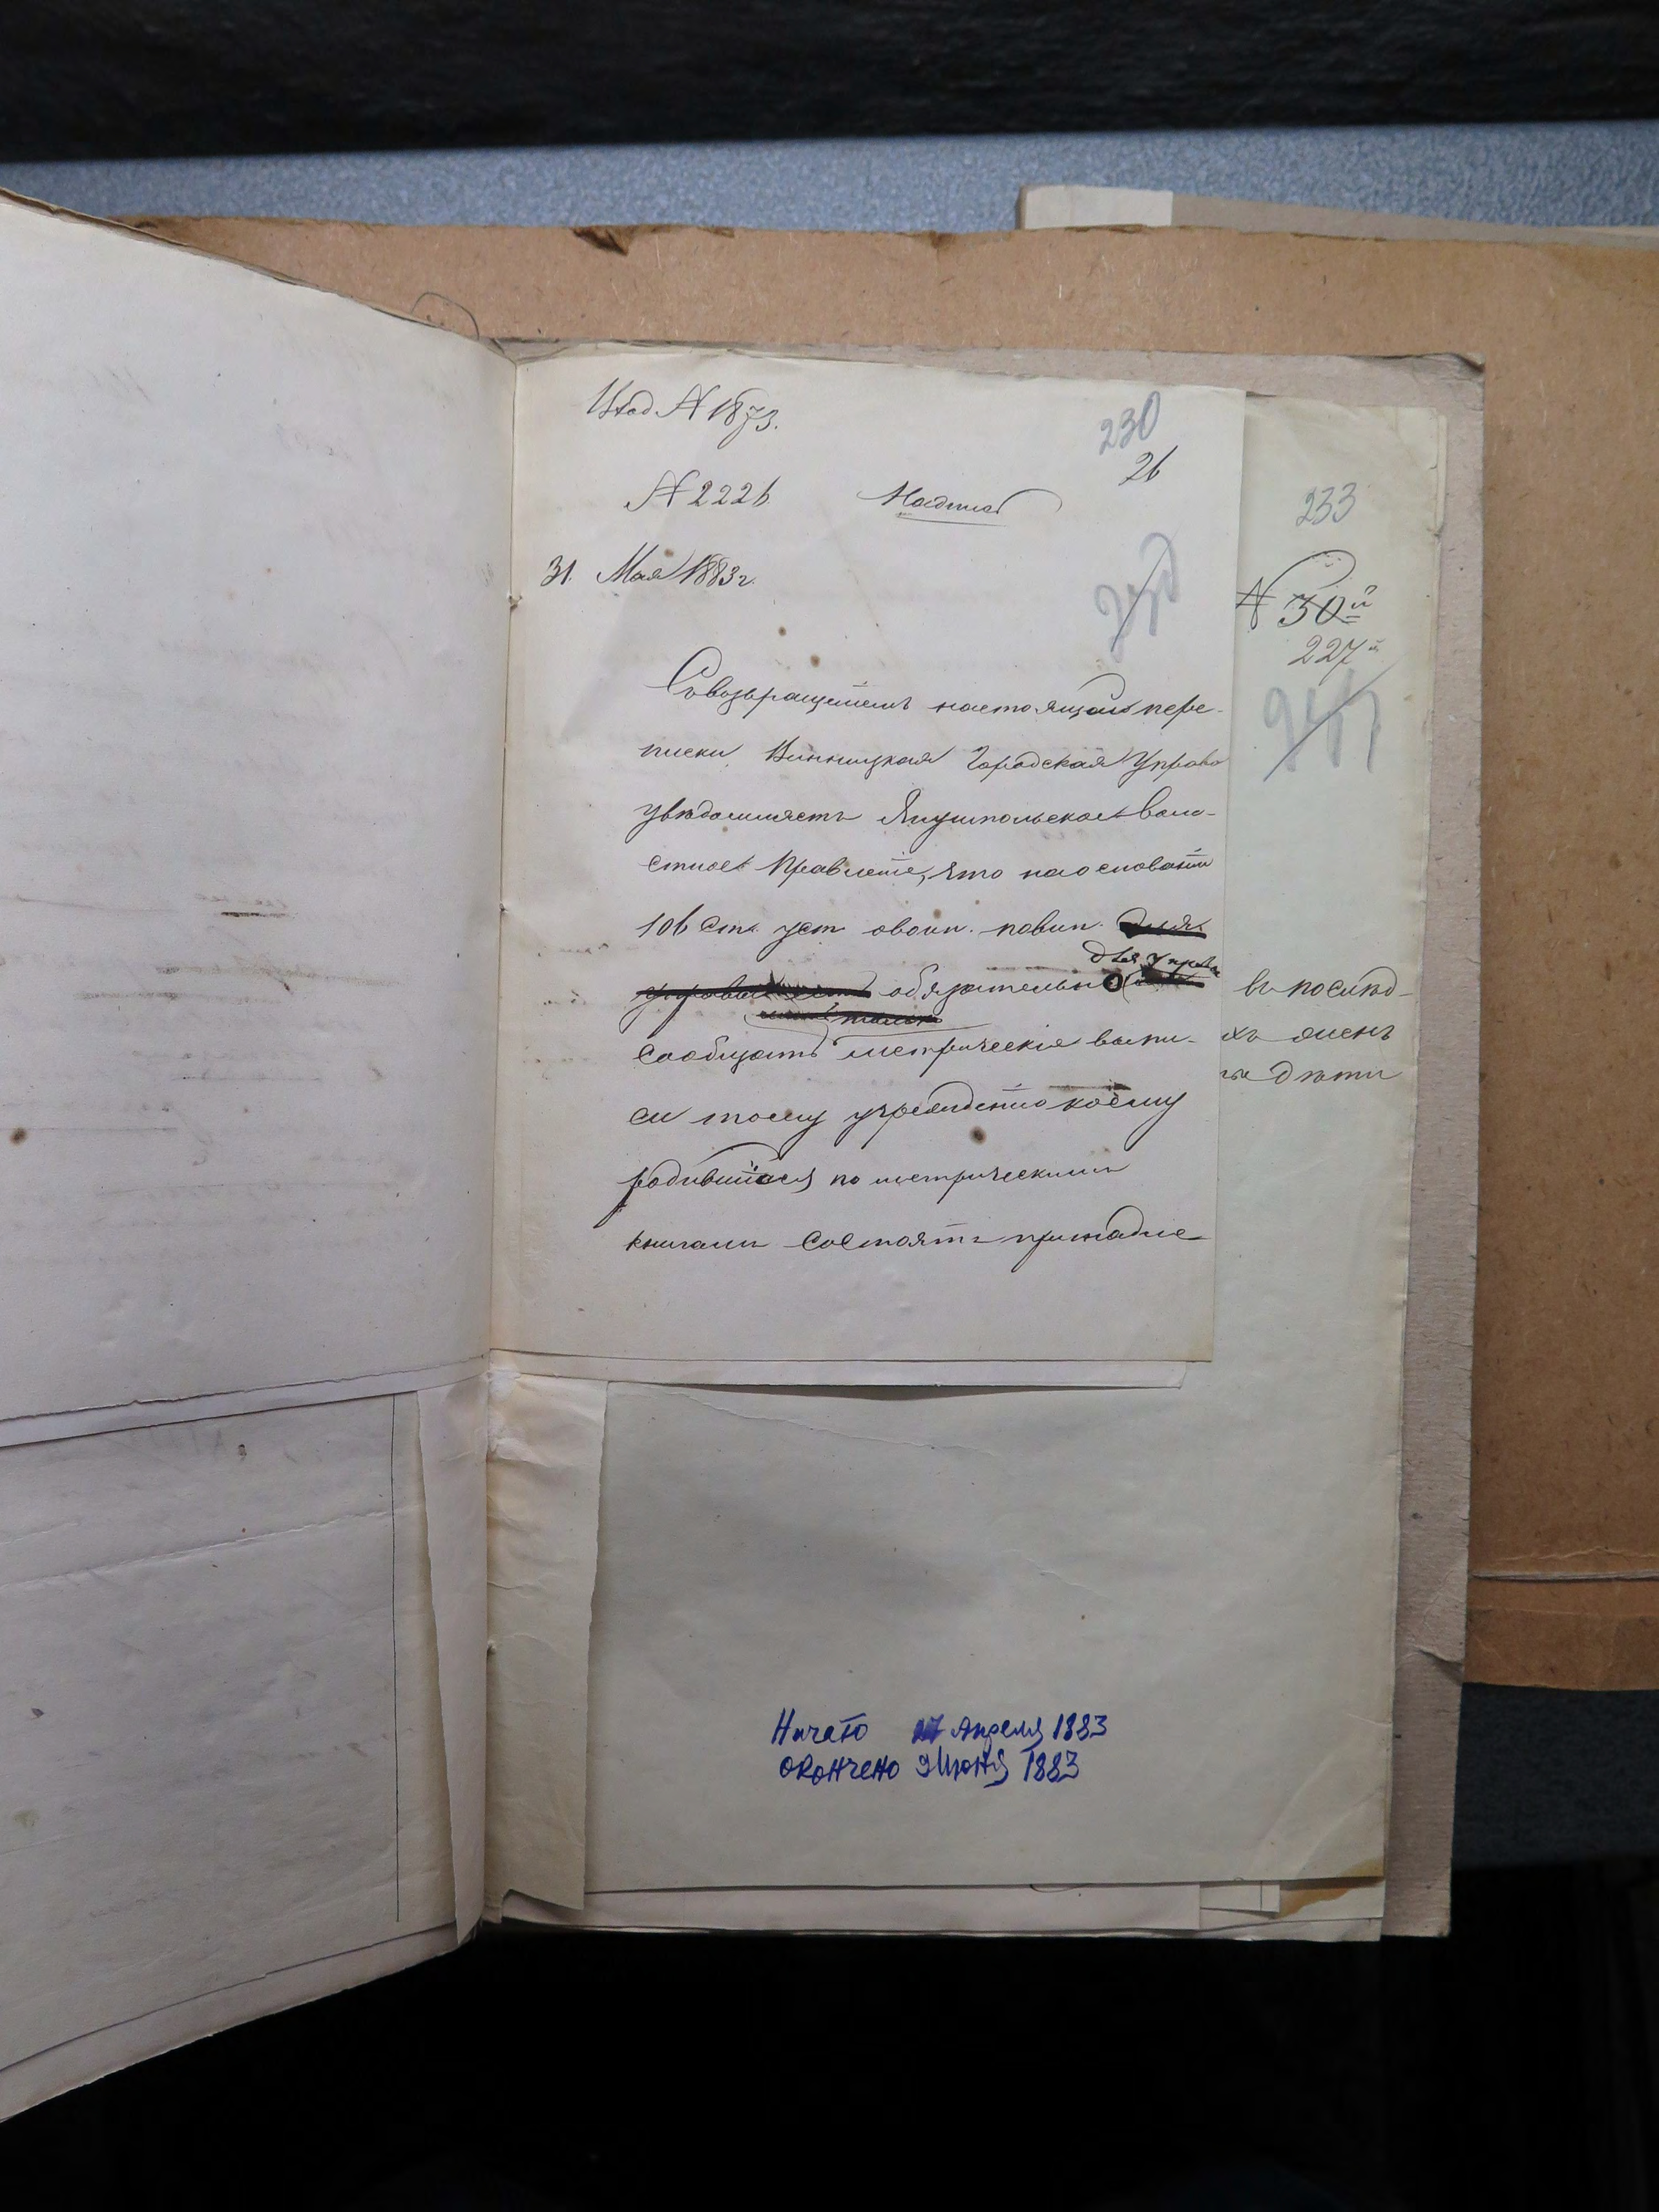 Исход № 1873.
230
26
№ 2226 Надпись
31. Мая 1883 г.
Съ возвращеніемъ настоящей пере-
писки Винницкая Городская Управа
увѣдомляетъ Янушпольское Воло-
стное Правленіе, что на основаніи
106 ст. уст о воин. повин. для
для Управы
обязательно
сообщать метрическія выпи-
си тому учрежденію коему
родившійся по метрическимъ
книгамъ состоятъ принадле
233
№ 30й
227й
въ послѣд-
хъ именъ
дѣти
Начато 27 Апреля 1883
Окончено 9 Июня 1883